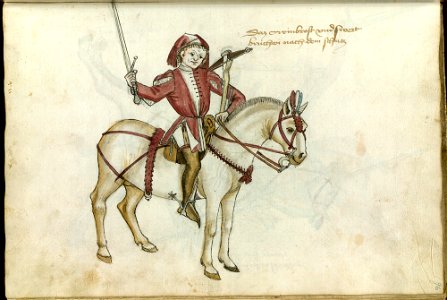 Das armbrost vnd swert
bruchen nach dem schuz